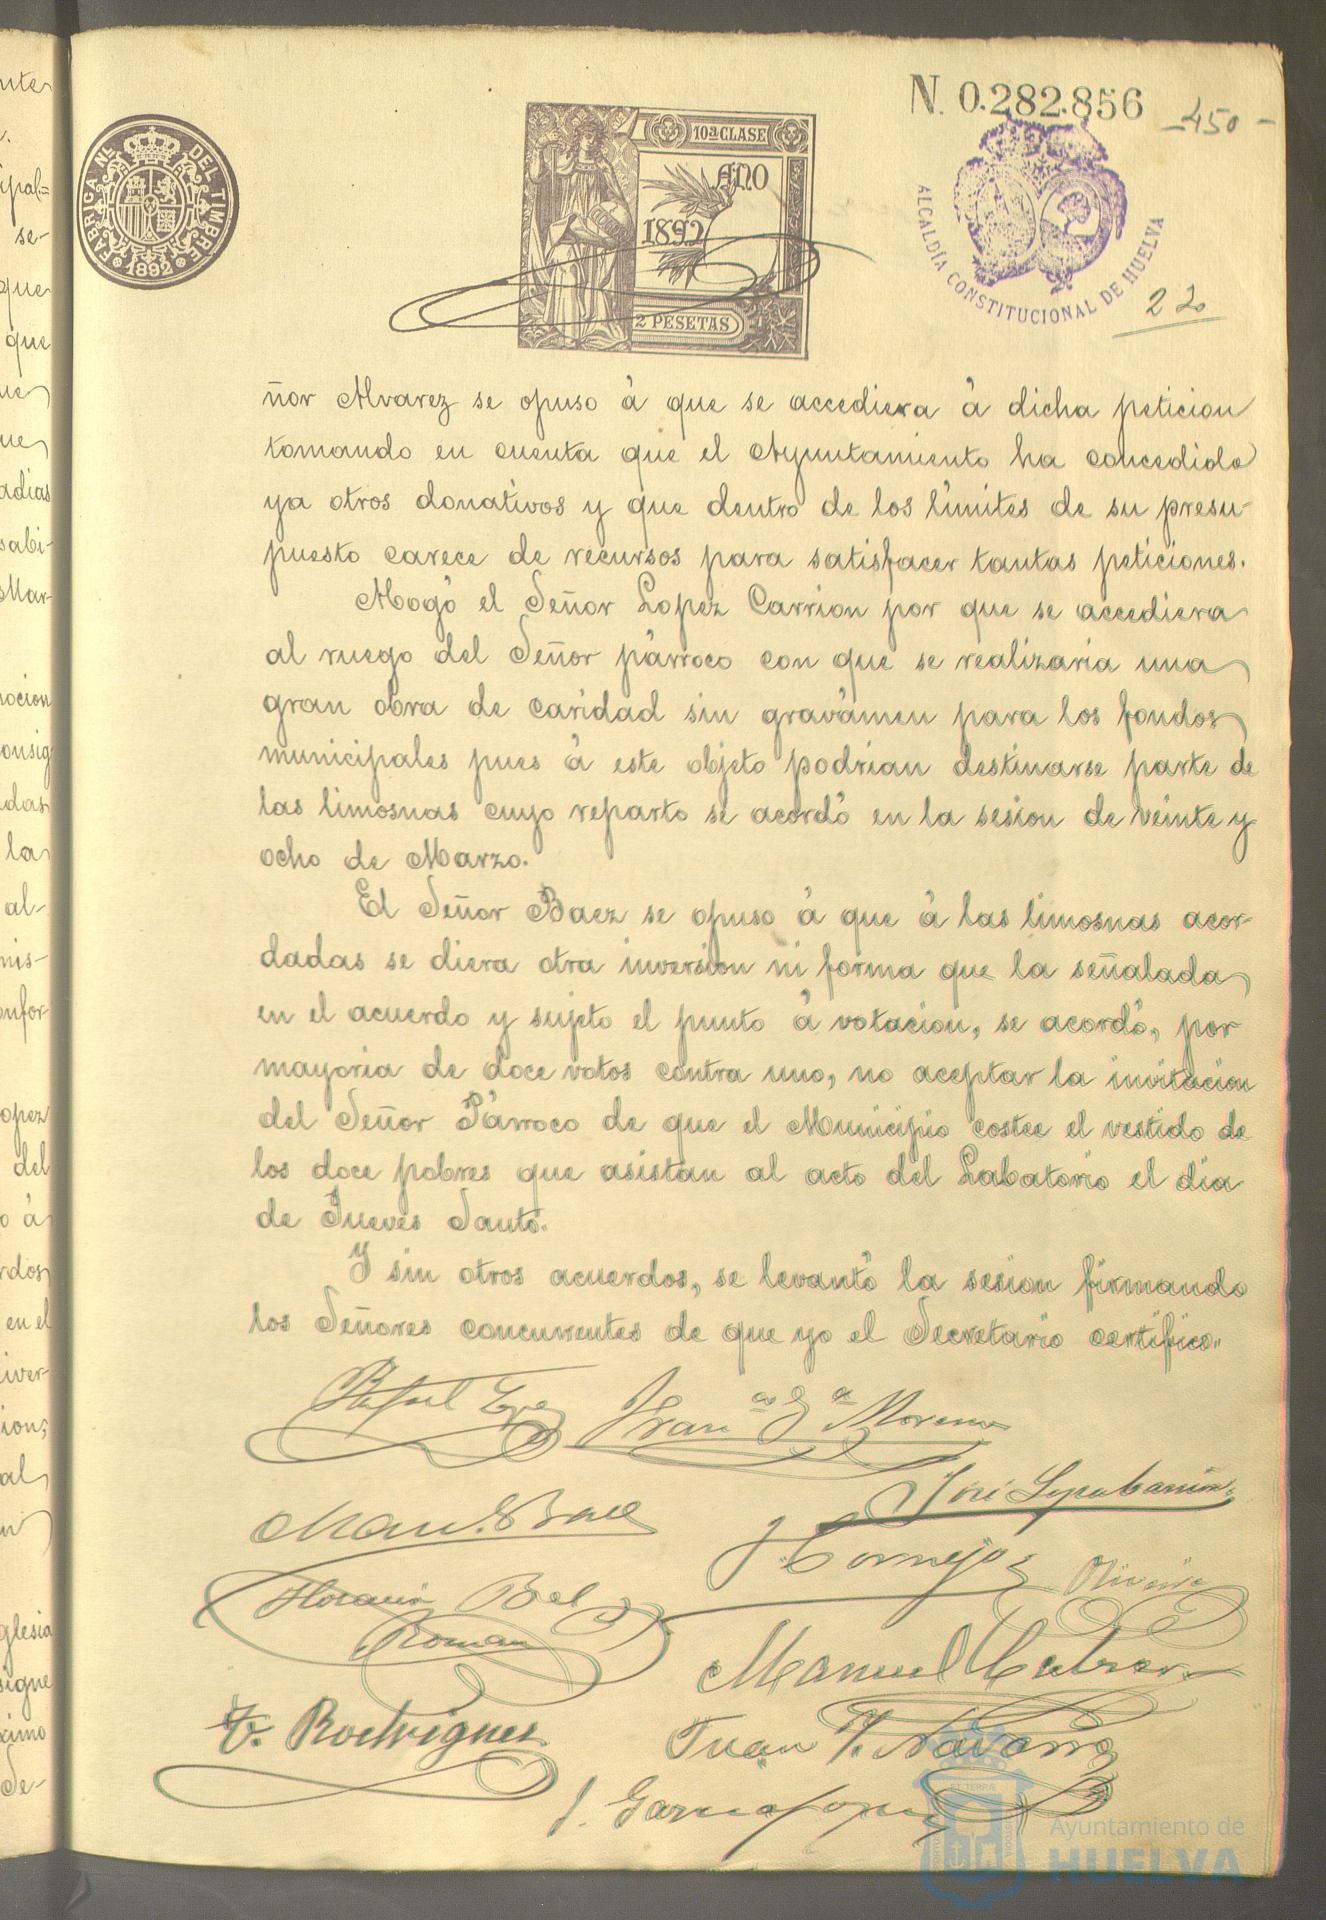 N. 0.282.856
-450-
FABRICA NL. DEL TIMBRE
1892
10ª CLASE
AÑO
1892
2 PESETAS
ALCALDÍA CONSTITUCIONAL DE HUELVA
22
ñor Alvarez se opuso á que se accediera á dicha peticion
tomando en cuenta que el Ayuntamiento ha concedido
ya otros donativos y que dentro de los límites de su presu-
puesto carece de recursos para satisfacer tantas peticiones.
Abogó el Señor Lopez Carrion por que se accediera
al ruego del Señor párroco con que se realizaria una
gran obra de caridad sin gravámen para los fondos
municipales pues á este objeto podrian destinarse parte de
las limosnas cuyo reparto se acordó en la sesion de veinte y
ocho de Marzo.
El Señor Baez se opuso á que á las limosnas acor-
dadas se diera otra inversion ni forma que la señalada
en el acuerdo y sujeto el punto á votacion, se acordó, por
mayoria de doce votos contra uno, no aceptar la invitacion
del Señor Párroco de que el Municipio costee el vestido de
los doce pobres que asistan al acto del Labatorio el dia
de Jueves Santo.
Y sin otros acuerdos, se levantó la sesion firmando
los Señores concurrentes de que yo el Secretario certifico.
Rafael Lopez Franco Ga Moreno
José Lopez Carrion
Man. Baez
Cornejo
Horacio Bel
Roman
Manuel
F. Rodriguez
Juan Navarro
J. Garcia
ET TERRA
Ayuntamiento de
HUELVA